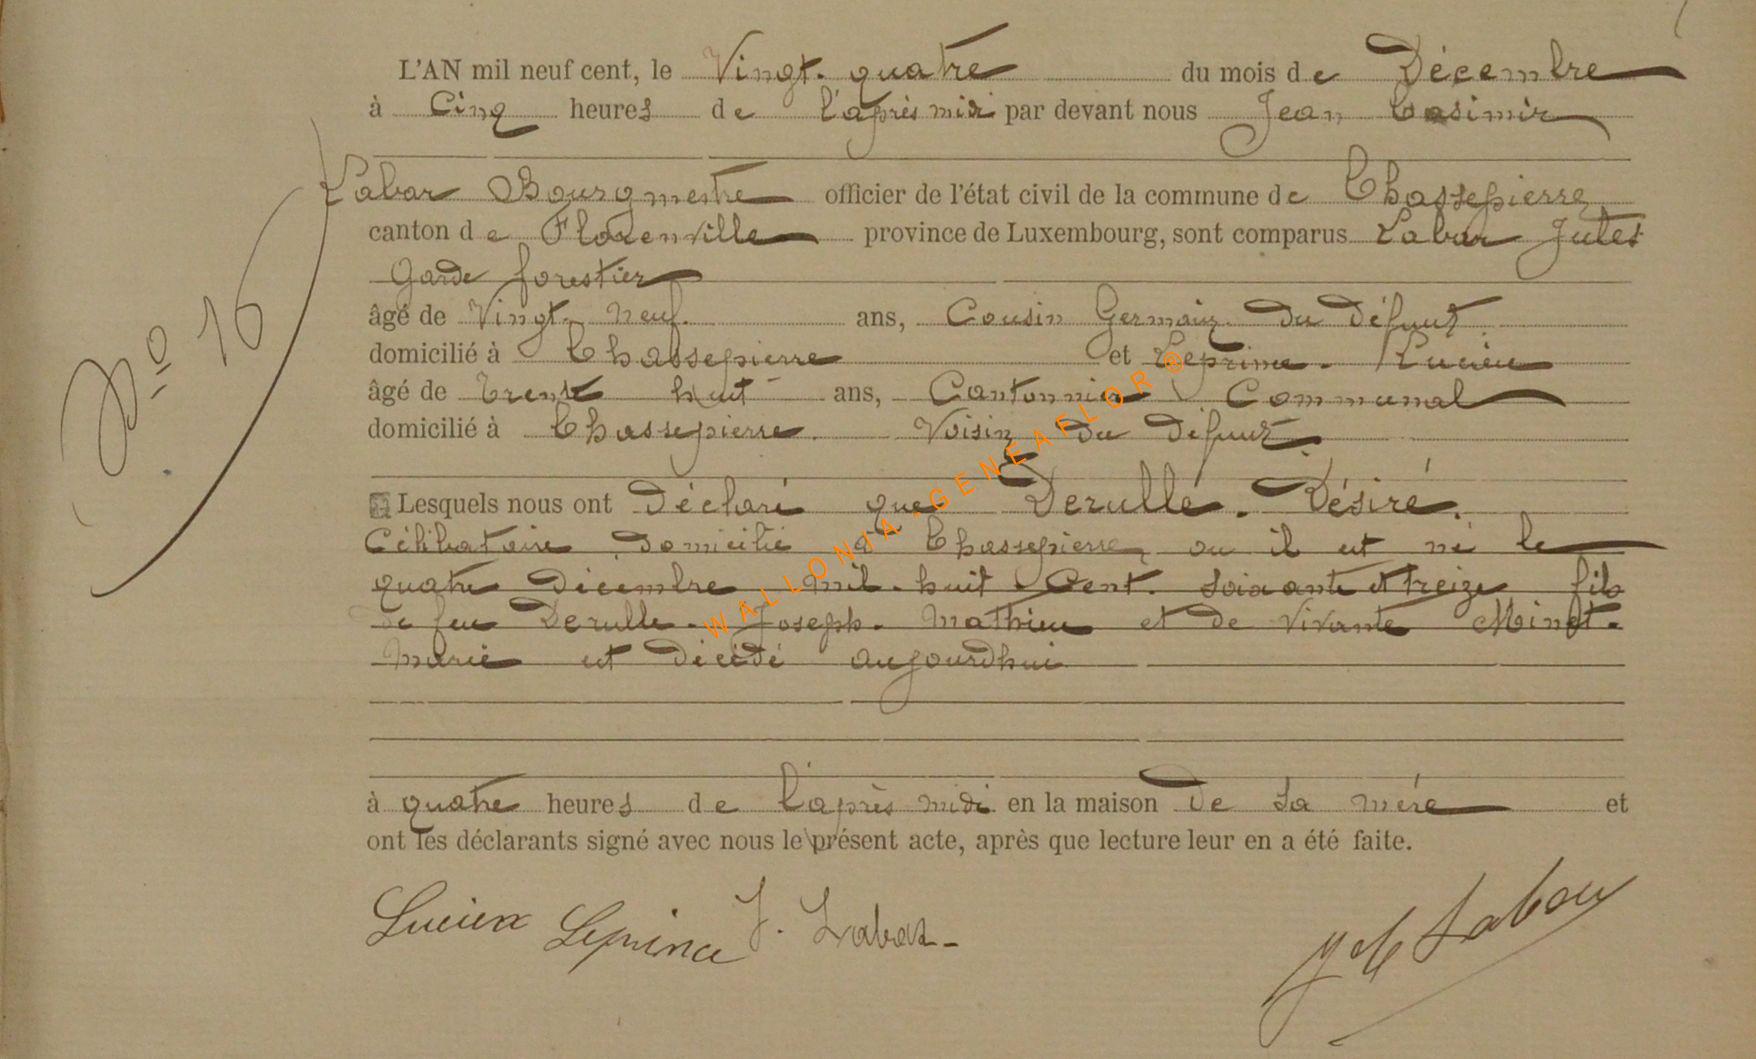 L'AN mil neuf cent, le Vingt-quatre du mois de Décembre
à Cinq heures de l'après midi par devant nous Jean Casimir
Labar Bourgmestre officier de l'état civil de la commune de Chassepierre
canton de Florenville province de Luxembourg, sont comparus Labar Jules
Garde forestier
N° 16
âgé de Vingt-neuf ans, Cousin Germain du défunt
domicilié à Chassepierre et Leprince. Lucien
âgé de trente huit ans, Cantonnier Communal
domicilié à Chassepierre. Voisin du défunt.
Lesquels nous ont déclaré que Derulle. Désiré.
Célibataire domicilié à Chassepierre ou il est né le
quatre décembre mil-huit-Cent. soixante et treize fils
de feu Derulle. Joseph. Mathieu et de vivante Minet.
Marie est décédé aujourdhui
à quatre heures de l'après midi en la maison de sa mère et
ont les déclarants signé avec nous le présent acte, après que lecture leur en a été faite.
Lucien Leprince J. Labar
Labar
WALLONIA-GENEAFLOR®